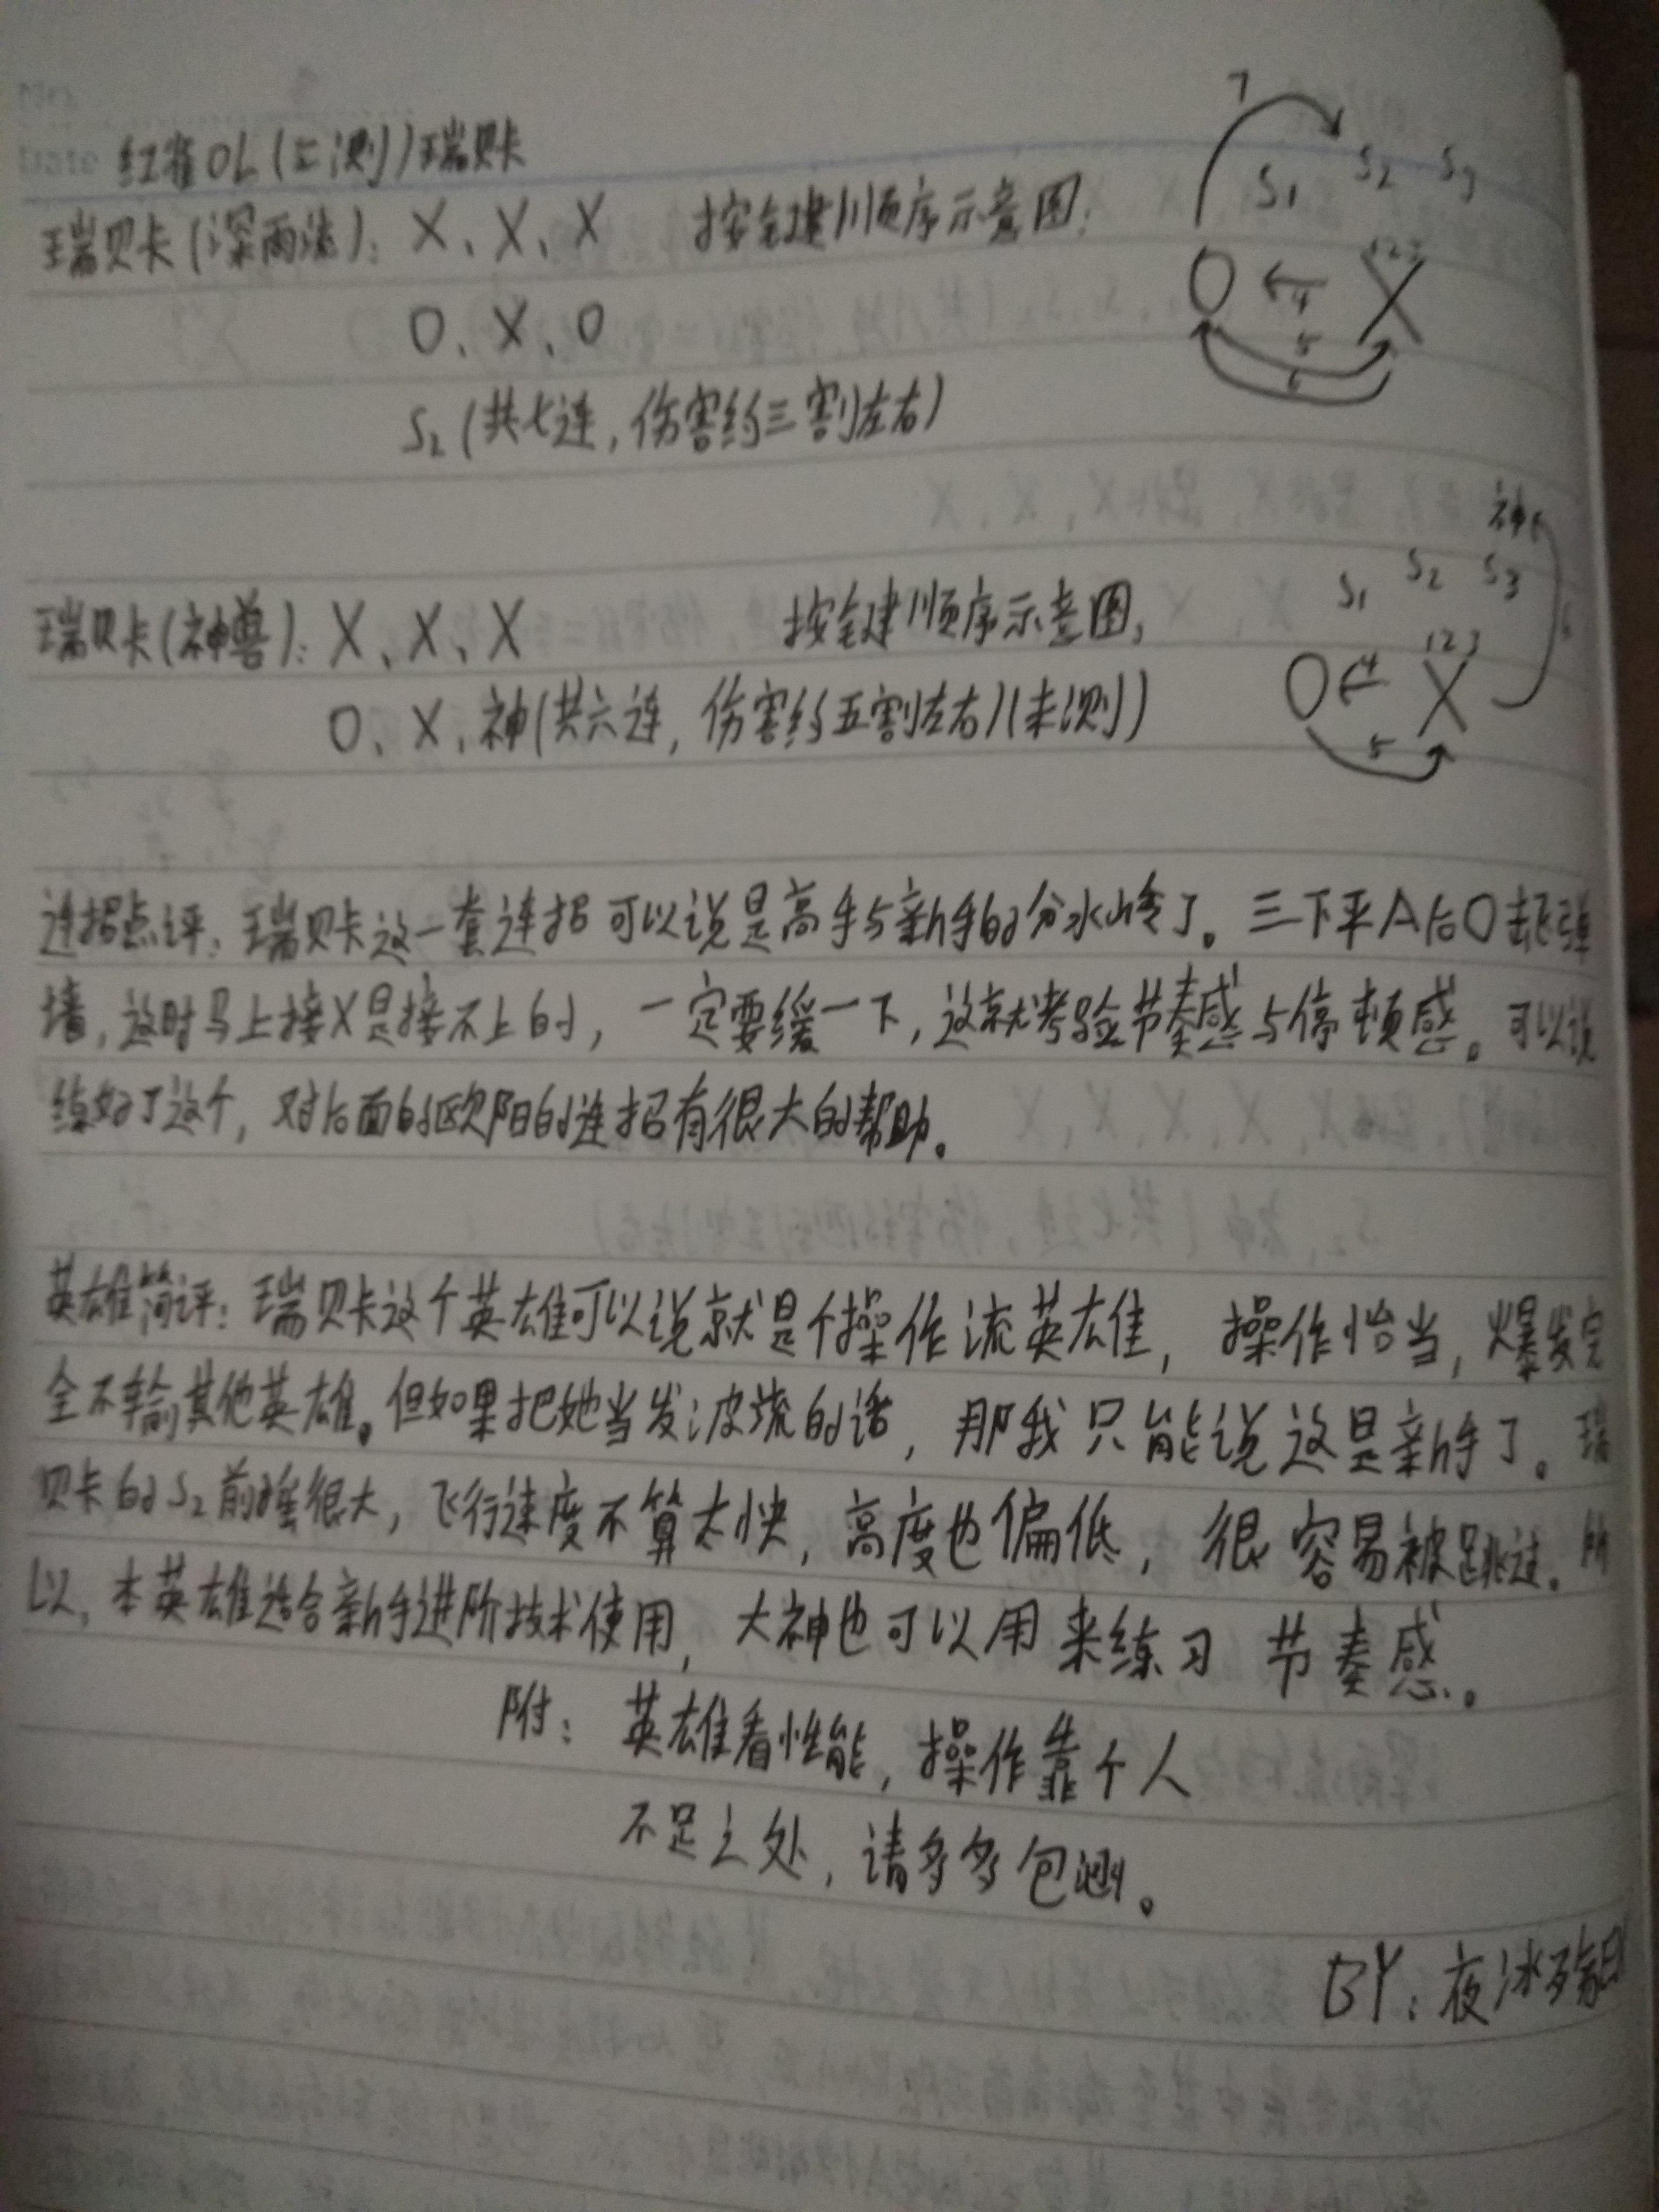 No.
Date 红雀OL(三测)瑞贝卡
瑞贝卡(深雨流): X、X、X 按键顺序示意图:
O、X、O
S2(共七连,伤害约三割左右)
7
S1 S2 S3
1 2 3
O ←4 X
5
6
瑞贝卡(神兽): X、X、X 按键顺序示意图:
O、X、神(共六连,伤害约五割左右)(未测)
神
S1 S2 S3
1 2 3
O ←4 X
5
6
连招点评: 瑞贝卡这一套连招可以说是高手与新手的分水岭了。三下平A后O击飞弹
墙,这时马上接X是接不上的,一定要缓一下,这就考验节奏感与停顿感。可以说
练好了这个,对后面的欧阳的连招有很大的帮助。
英雄简评: 瑞贝卡这个英雄可以说就是个操作流英雄,操作恰当,爆发完
全不输其他英雄。但如果把她当发波流的话,那我只能说这是新手了。瑞
贝卡的S2前摇很大,飞行速度不算太快,高度也偏低,很容易被跳过。所
以,本英雄适合新手进阶技术使用,大神也可以用来练习节奏感。
附: 英雄看性能,操作靠个人
不足之处,请多多包涵。
BY: 夜冰殇